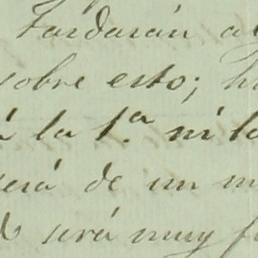 Tardarán al
sobre esto; h
á la 1.ª ni la
será de un m
será muy f